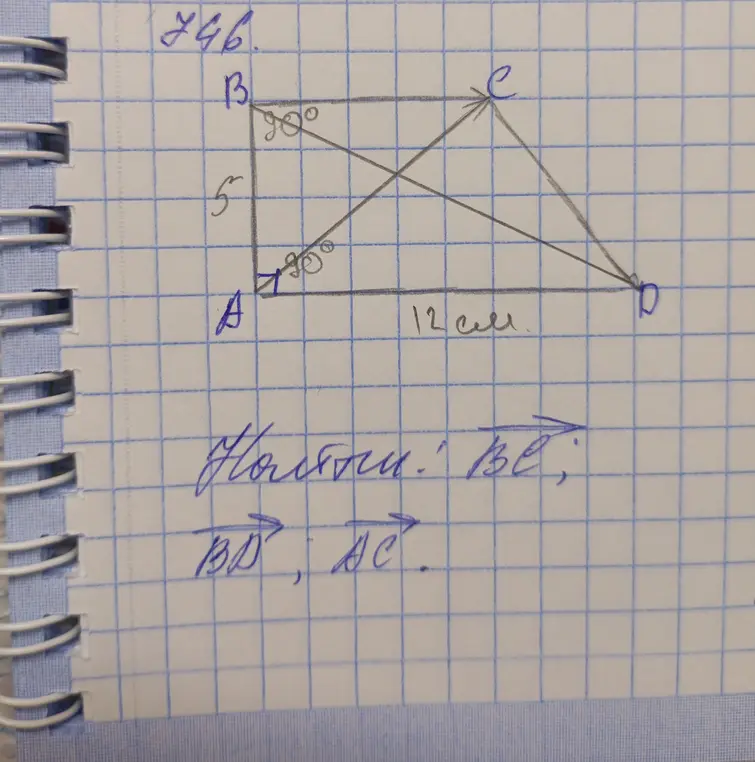 746.
B
C
90°
5
90°
A
D
12 см.
Найти: BC;
BD; AC.